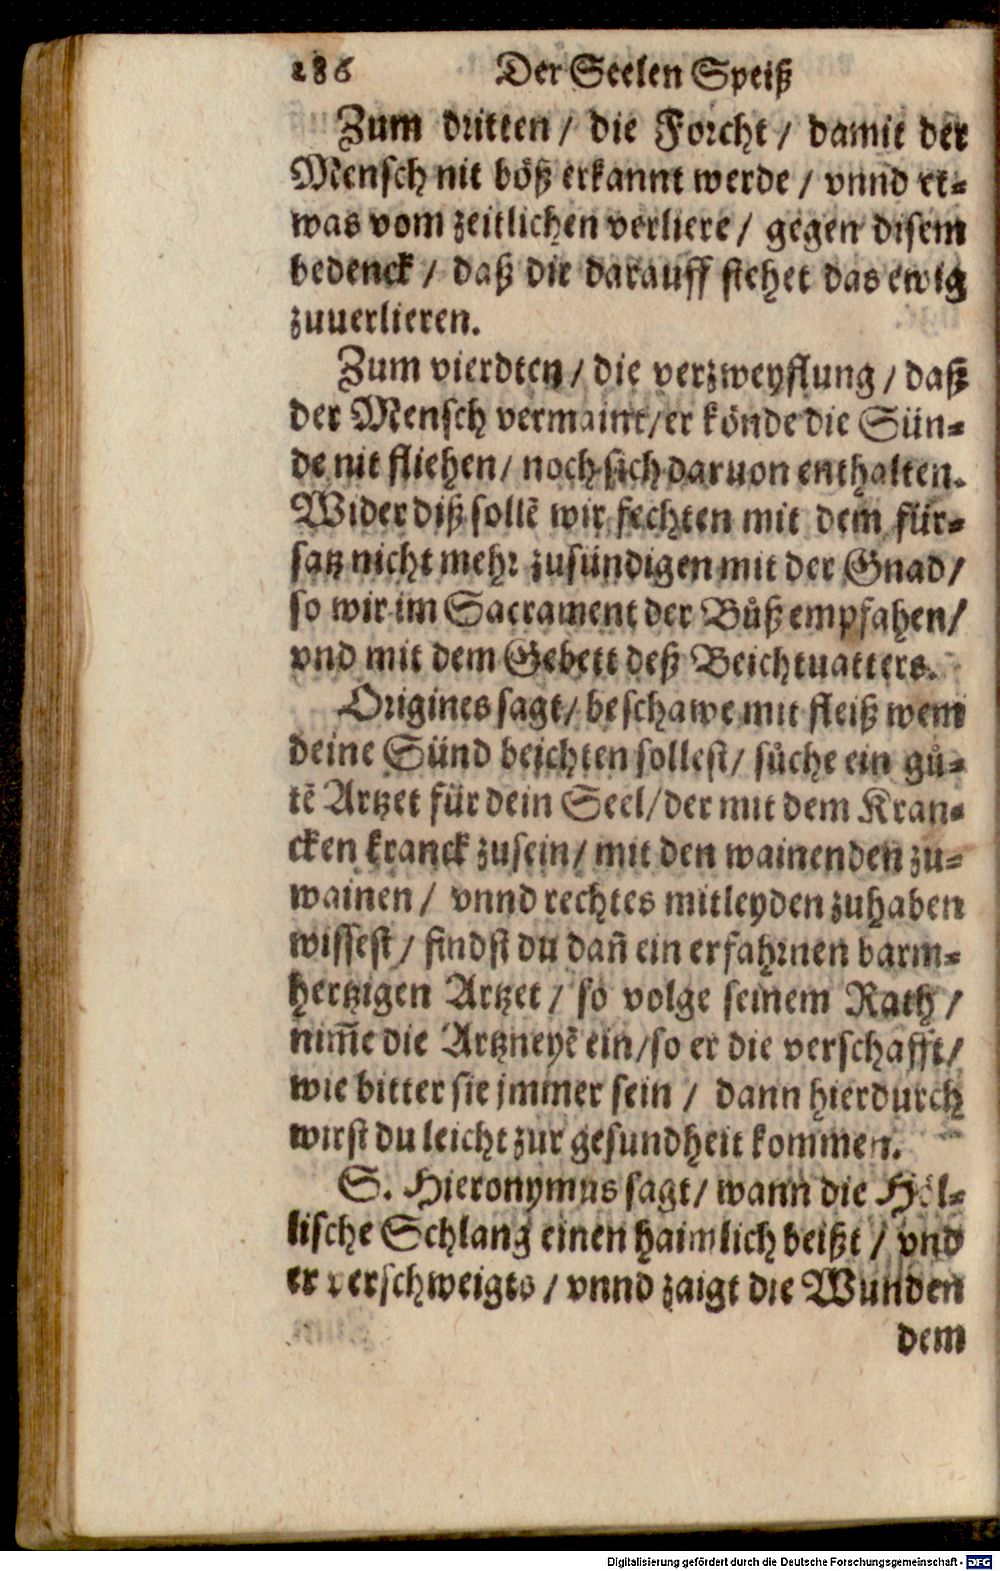 286 Der Seelen Speiß
Zum dritten / die Forcht / damit der
Mensch nit böß erkannt werde / vnnd et⸗
was vom zeitlichen verliere / gegen disem
bedenck / daß dir darauff stehet das ewig
zuuerlieren.
Zum vierdten / die verzweyflung / daß
der Mensch vermaint / er könde die Sün⸗
de nit fliehen / noch sich daruon enthalten.
Wider diß sollẽ wir fechten mit dem für⸗
satz nicht mehr zusündigen mit der Gnad /
so wir im Sacrament der Bůß empfahen /
vnd mit dem Gebett deß Beichtuatters.
Origines sagt / beschawe mit fleiß wem
deine Sünd beichten sollest / sůche ein gů⸗
tẽ Artzet für dein Seel / der mit dem Kran⸗
cken kranck zusein / mit den wainenden zu⸗
wainen / vnnd rechtes mitleyden zuhaben
wissest / findst du dañ ein erfahrnen barm⸗
hertzigen Artzet / so volge seinem Rath /
nim̃e die Artzneyẽ ein / so er die verschafft /
wie bitter sie jmmer sein / dann hierdurch
wirst du leicht zur gesundheit kommen.
S. Hieronymus sagt / wann die Höl⸗
lische Schlang einen haimlich beißt / vnd
er verschweigts / vnnd zaigt die Wunden
dem
Digitalisierung gefördert durch die Deutsche Forschungsgemeinschaft - DFG